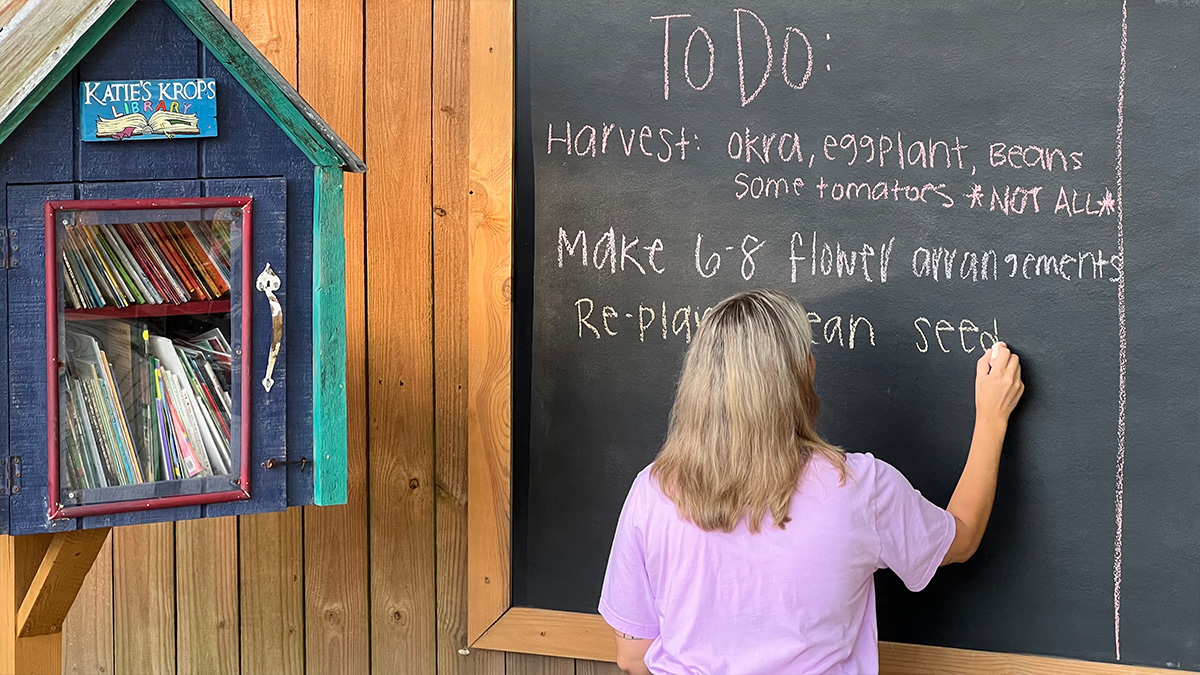 KATIE'S KROPS
LIBRARY
ToDo:
Harvest: okra, eggplant, Beans
some tomatoes *NOT ALL*
Make 6-8 flower arrangements
seed